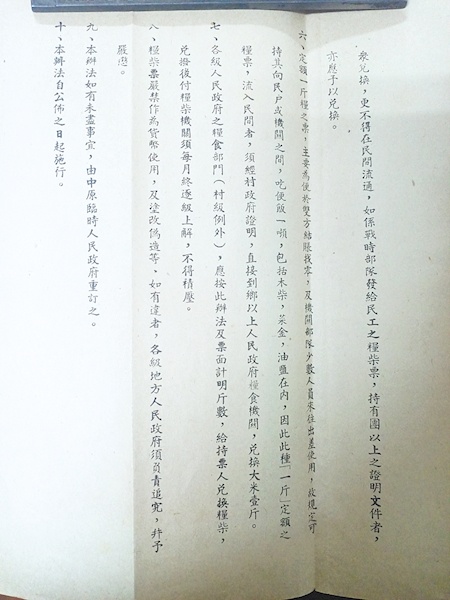 衆兑換，更不得在民間流通，如係戰時部隊發給民工之糧柴票，持有團以上之證明文件者，
亦應予以兑換。
六、定額一斤糧之票，主要為便於雙方結賬找零，及機關部隊少數人員來往出差使用，故規定可
持其向民户或機關之間，吃便飯一頓，包括木柴，菜金，油鹽在内，因此此種「一斤」定額之
糧票，流入民間者，須經村政府證明，直接到鄉以上人民政府糧食機關，兑換大米壹斤。
七、各級人民政府之糧食部門（村級例外），應按此辦法及票面計明斤數，給持票人兑換糧柴，
兑撥後付糧柴機關須每月終逐級上解，不得積壓。
八、糧柴票嚴禁作為貨幣使用，及塗改偽造等、如有違者，各級地方人民政府須負責追究，并予
嚴懲。
九、本辦法如有未盡事宜，由中原臨時人民政府重訂之。
十、本辦法自公佈之日起施行。